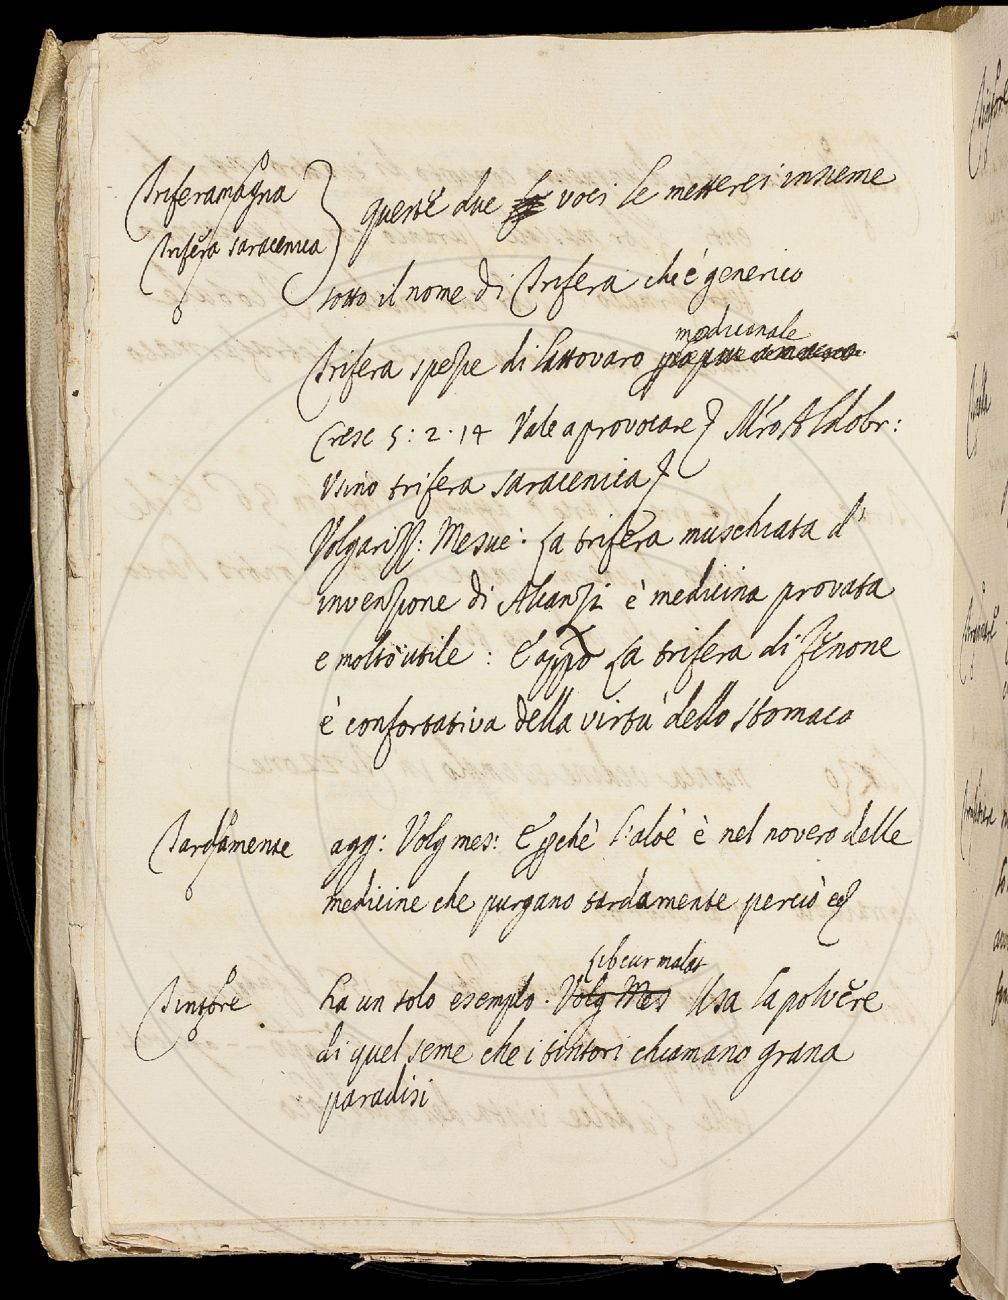 Triferamagna
Trifera saracenica
queste due voci le metterei insieme
sotto il nome di Trifera che è generico
medicinale
Trifera spezie di lattovaro
Cresc 5: 2. 14 Vale a provocare Mro Aldobr:
Usino trifera saracenica
Volgarizz: Mesue: La trifera muschiata d'
invenzione di Alcanzi è medicina provata
e molto utile: E appo La trifera di Zenone
è confortativa della virtù dello stomaco
Tardamente agg: Volg mes: E perchè l'aloè è nel novero delle
medicine che purgano tardamente perciò
Libcur malat
Tintore ha un solo esempio. Volg Mes Usa la polvere
di quel seme che i tintori chiamano grana
paradisi